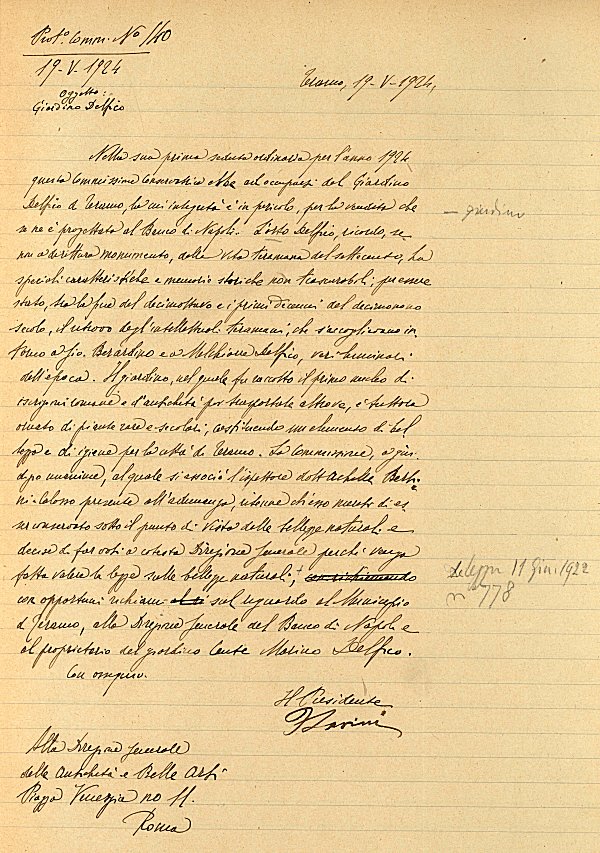 Prot.º Comm. Nº /40
19-V-1924
Oggetto:
Giardino Delfico
Teramo, 19-V-1924,
Nella sua prima seduta ordinaria per l'anno 1924
questa Commissione Conservatrice ebbe ad occuparsi del Giardino
Delfico di Teramo, la cui integrità è in pericolo, per la vendita che
se ne è progettata al Banco di Napoli. L'orto Delfico, ricordo, se
non addirittura monumento, della vita teramana del settecento, ha
speciali caratteristiche e memorie storiche non trascurabili, per essere
stato, tra la fine del decimottavo e i primi decenni del decimonono
secolo, il ritrovo degl'intellettuali teramani, che s'accoglievano in-
torno a Gio. Berardino e a Melchiorre Delfico, veri luminari
dell'epoca. Il giardino, nel quale fu raccolto il primo nucleo di
iscrizioni romane e d'antichità poi trasportate altrove, è tuttora
ornato di piante rare e secolari, costituendo un elemento di bel-
lezza e di igiene per la città di Teramo. La Commissione, a giu-
dizio unanime, al quale si associò l'ispettore dott. Achille Berti-
ni-Calosso presente all'adunanza, ritenne ch'esso meriti di es-
sere conservato sotto il punto di vista delle bellezze naturali e
decise di far voti a cotesta Direzione Generale perchè venga
fatta valere la legge sulle bellezze naturali,
con opportuni richiami sul riguardo al Municipio
di Teramo, alla Direzione Generale del Banco di Napoli e
al proprietario del giardino Conte Marino Delfico.
Con ossequio.
Il Presidente
F. Savini
Alla Direzione Generale
delle Antichità e Belle Arti
Piazza Venezia no 11.
Roma
– giardino
Legge 11 Giu. 1922
nº 778